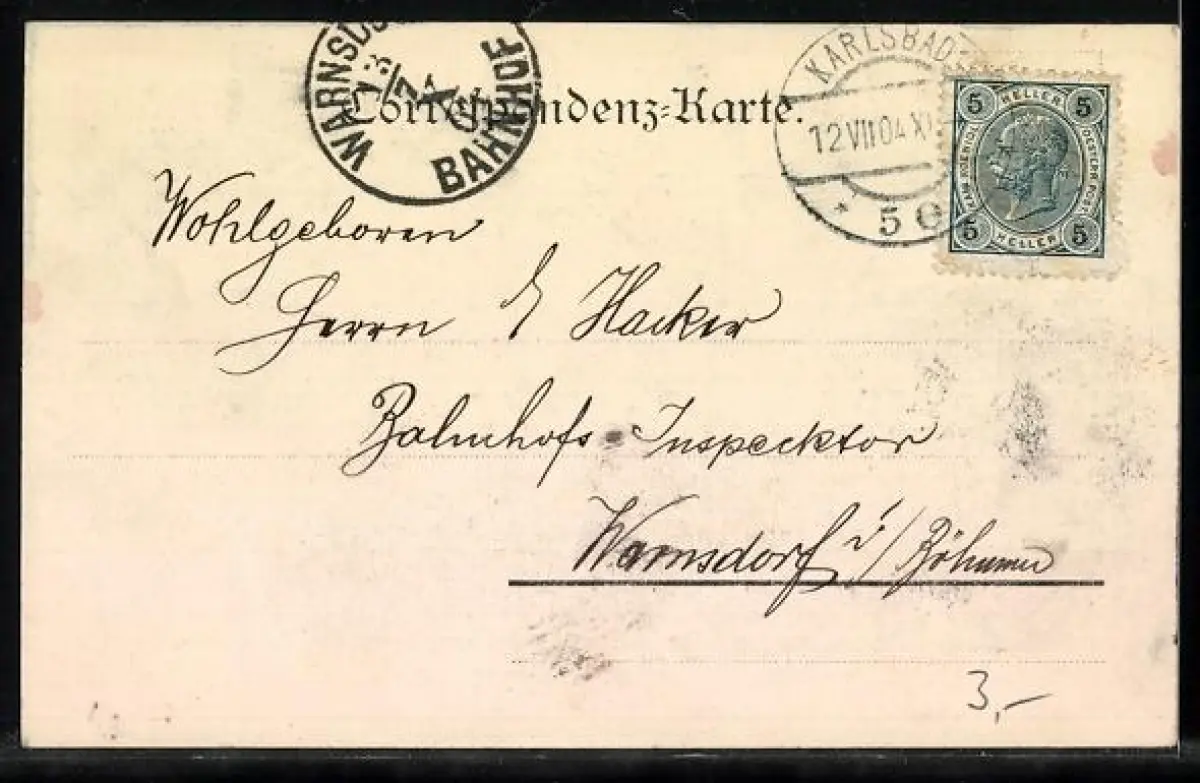 WARNSDO
13
7
X
BAHNHOF
Correspondenz-Karte.
KARLSBAD
12 VII 04 XI
* 5 e
5 HELLER 5
5 HELLER 5
Wohlgeboren
Herrn E Hacker
Bahnhofs-Inspecktor
Warnsdorf i/Böhmen
3,-